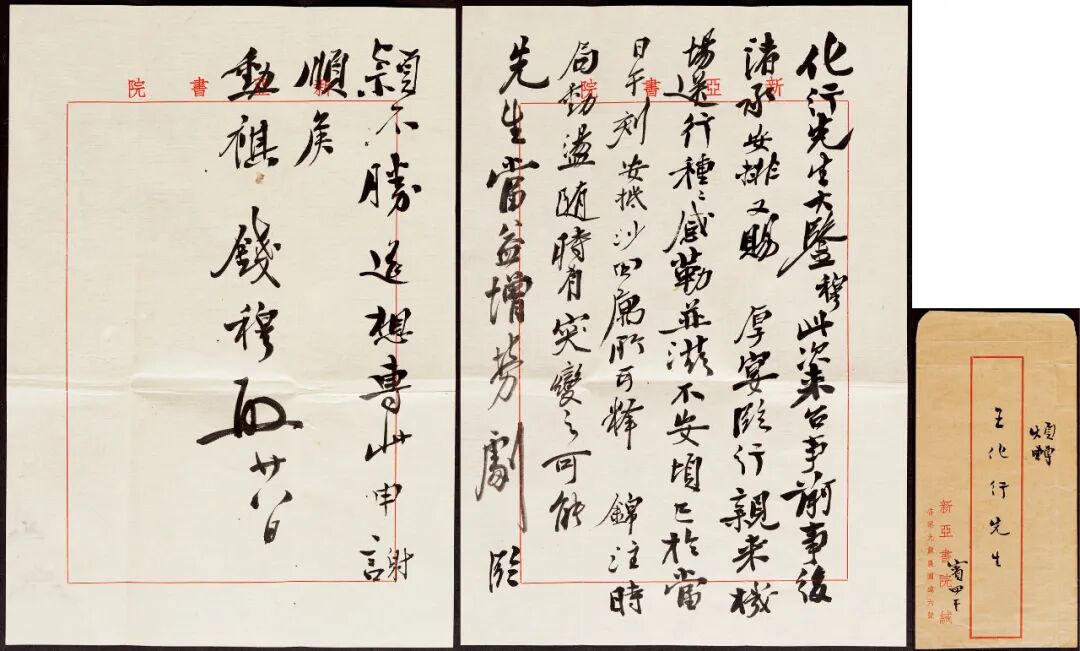 新亞書院
化行先生大鑒穆此次来台事前事後
諸承安排又賜 厚宴臨行親来機
場送行種〻感勒並滋不安頃已於當
日午刻安抵沙田寓所可釋 錦注時
局動盪随時有突變之可能
先生當益增勞劇臨
新亞書院
穎不勝遥想專此申謝
順矦
動祺 錢穆啟廿八日
煩轉
王化行先生
賓四
新亞書院緘
香港九龍農圃道六號